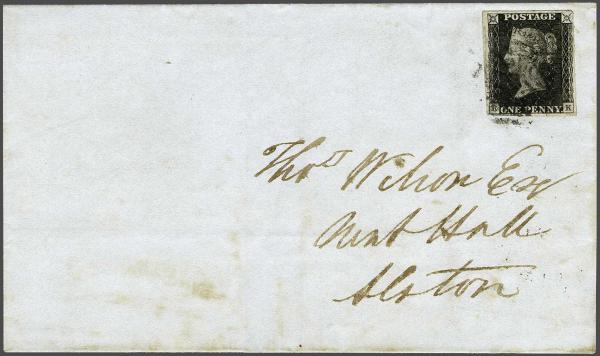 POSTAGE
ONE PENNY K
Thos Wilson Esq
Nent Hall
Alston